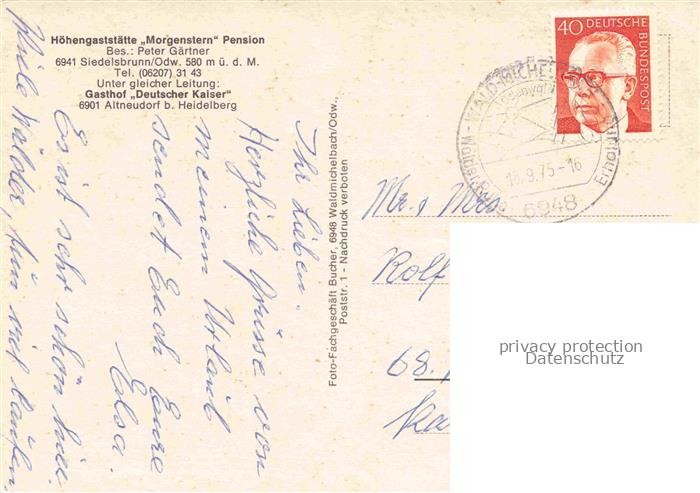 Höhengaststätte „Morgenstern" Pension
Bes.: Peter Gärtner
6941 Siedelsbrunn/Odw. 580 m ü. d. M.
Tel. (06207) 31 43
Unter gleicher Leitung:
Gasthof „Deutscher Kaiser"
6901 Altneudorf b. Heidelberg
Ihr Lieben.
Herzliche Grüsse von
meinem Urlaub
sendet Euch Eure
Elsa.
Es ist sehr schön hier.
Viele Wälder, tun viel laufen.
Foto-Fachgeschäft Bucher, 6948 Waldmichelbach/Odw.,
Poststr. 1 - Nachdruck verboten
40 DEUTSCHE
BUNDESPOST
WALD-MICHELBACH
9.75-16
6948
Mr. & Mrs
Rolf
68.
privacy protection
Datenschutz